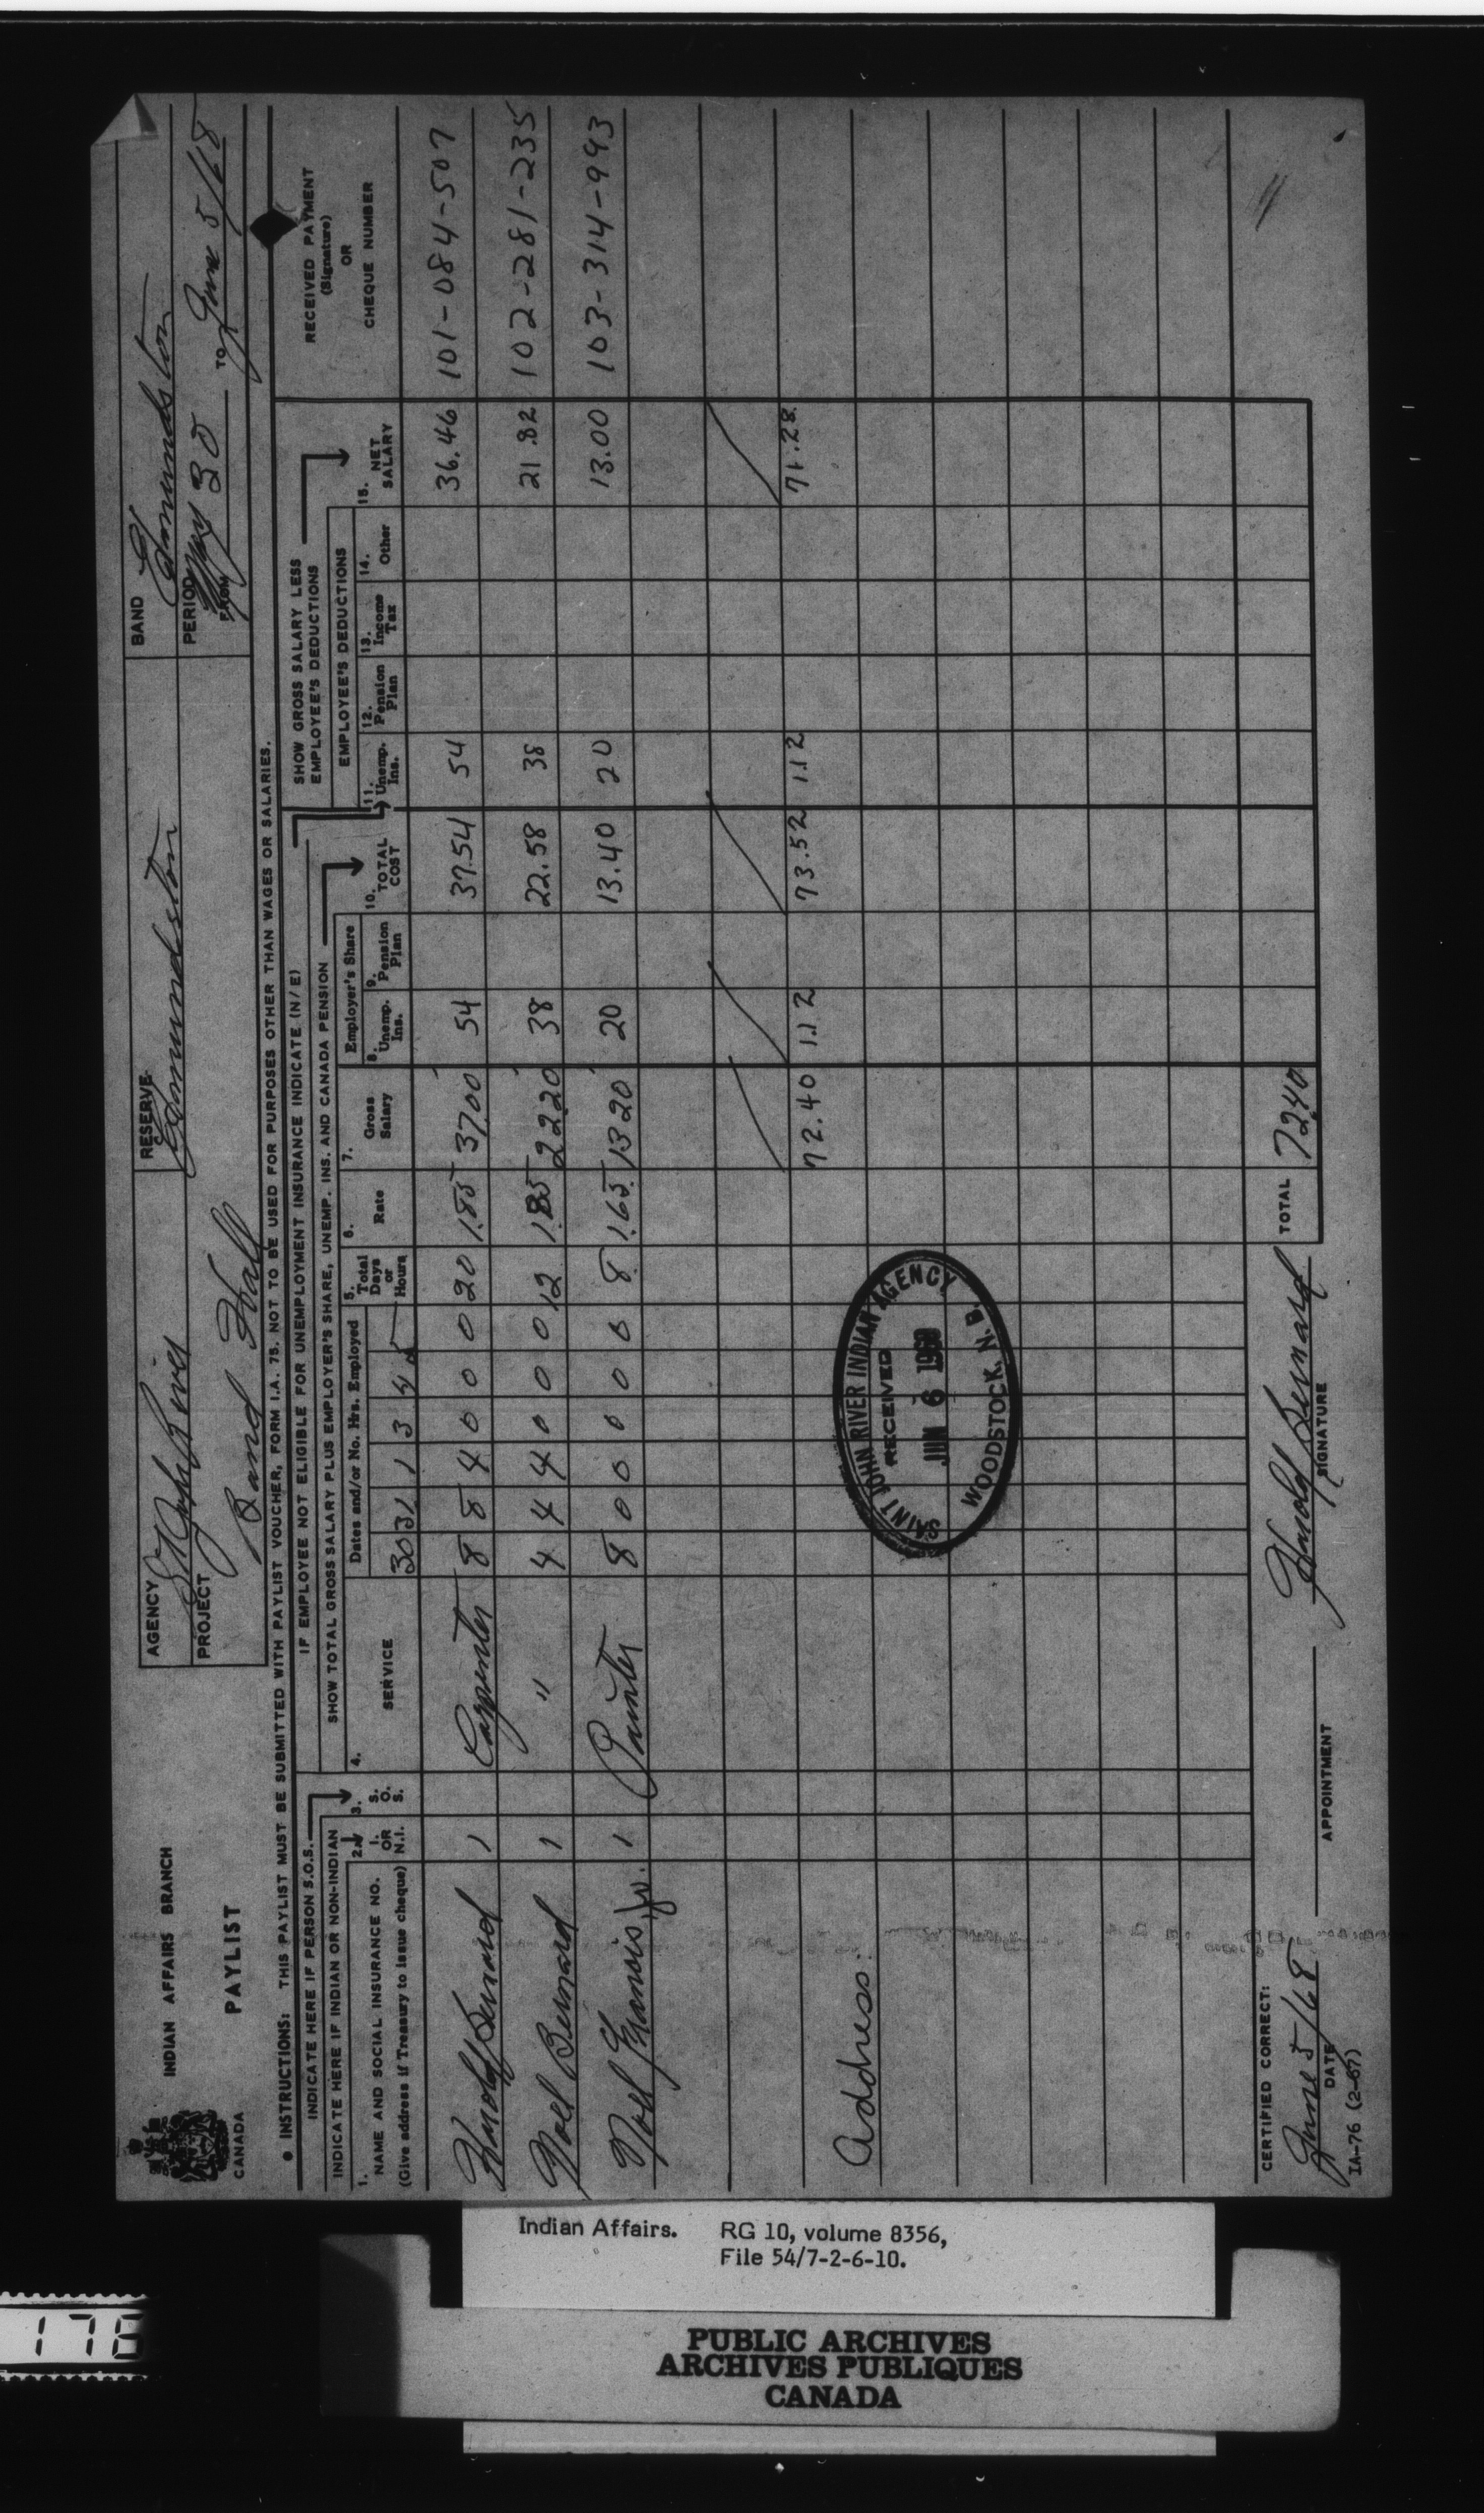 INDIAN AFFAIRS BRANCH
PAYLIST
CANADA
AGENCY St John River
RESERVE Edmundston
BAND Edmundston
PROJECT Band Hall
PERIOD FROM May 30 TO June 5/68
• INSTRUCTIONS: THIS PAYLIST MUST BE SUBMITTED WITH PAYLIST VOUCHER, FORM I.A. 75. NOT TO BE USED FOR PURPOSES OTHER THAN WAGES OR SALARIES.
IF EMPLOYEE NOT ELIGIBLE FOR UNEMPLOYMENT INSURANCE INDICATE (N/E)
INDICATE HERE IF PERSON S.O.S.
SHOW TOTAL GROSS SALARY PLUS EMPLOYER'S SHARE, UNEMP. INS. AND CANADA PENSION
SHOW GROSS SALARY LESS EMPLOYEE'S DEDUCTIONS
INDICATE HERE IF INDIAN OR NON-INDIAN
1. NAME AND SOCIAL INSURANCE NO.
(Give address if Treasury to issue cheque)
2. I. OR N.I.
3. S. O. S.
4. SERVICE
Dates and/or No. Hrs. Employed
30 31 1 3 4 5
5. Total Days or Hours
6. Rate
7. Gross Salary
Employer's Share
8. Unemp. Ins.
9. Pension Plan
10. TOTAL COST
EMPLOYEE'S DEDUCTIONS
11. Unemp. Ins.
12. Pension Plan
13. Income Tax
14. Other
15. NET SALARY
RECEIVED PAYMENT
(Signature)
OR
CHEQUE NUMBER
Harold Bernard 1 Carpenter 8 8 4 0 0 0 20 1.85 37.00 54 37.54 54 36.46 101-084-507
Noel Bernard 1 " 4 4 4 0 0 0 12 1.85 22.20 38 22.58 38 21.82 102-281-235
Noel Francis Jr. 1 Painter 8 0 0 0 0 0 8 1.65 13.20 20 13.40 20 13.00 103-314-993
72.40 1.12 73.52 1.12 71.28
Address:
SAINT JOHN RIVER INDIAN AGENCY
RECEIVED
JUN 6 1968
WOODSTOCK, N. B.
CERTIFIED CORRECT:
June 5/68
DATE
APPOINTMENT
Harold Bernard
SIGNATURE
TOTAL 72.40
IA-76 (2-67)
Indian Affairs. RG 10, volume 8356,
File 54/7-2-6-10.
PUBLIC ARCHIVES
ARCHIVES PUBLIQUES
CANADA